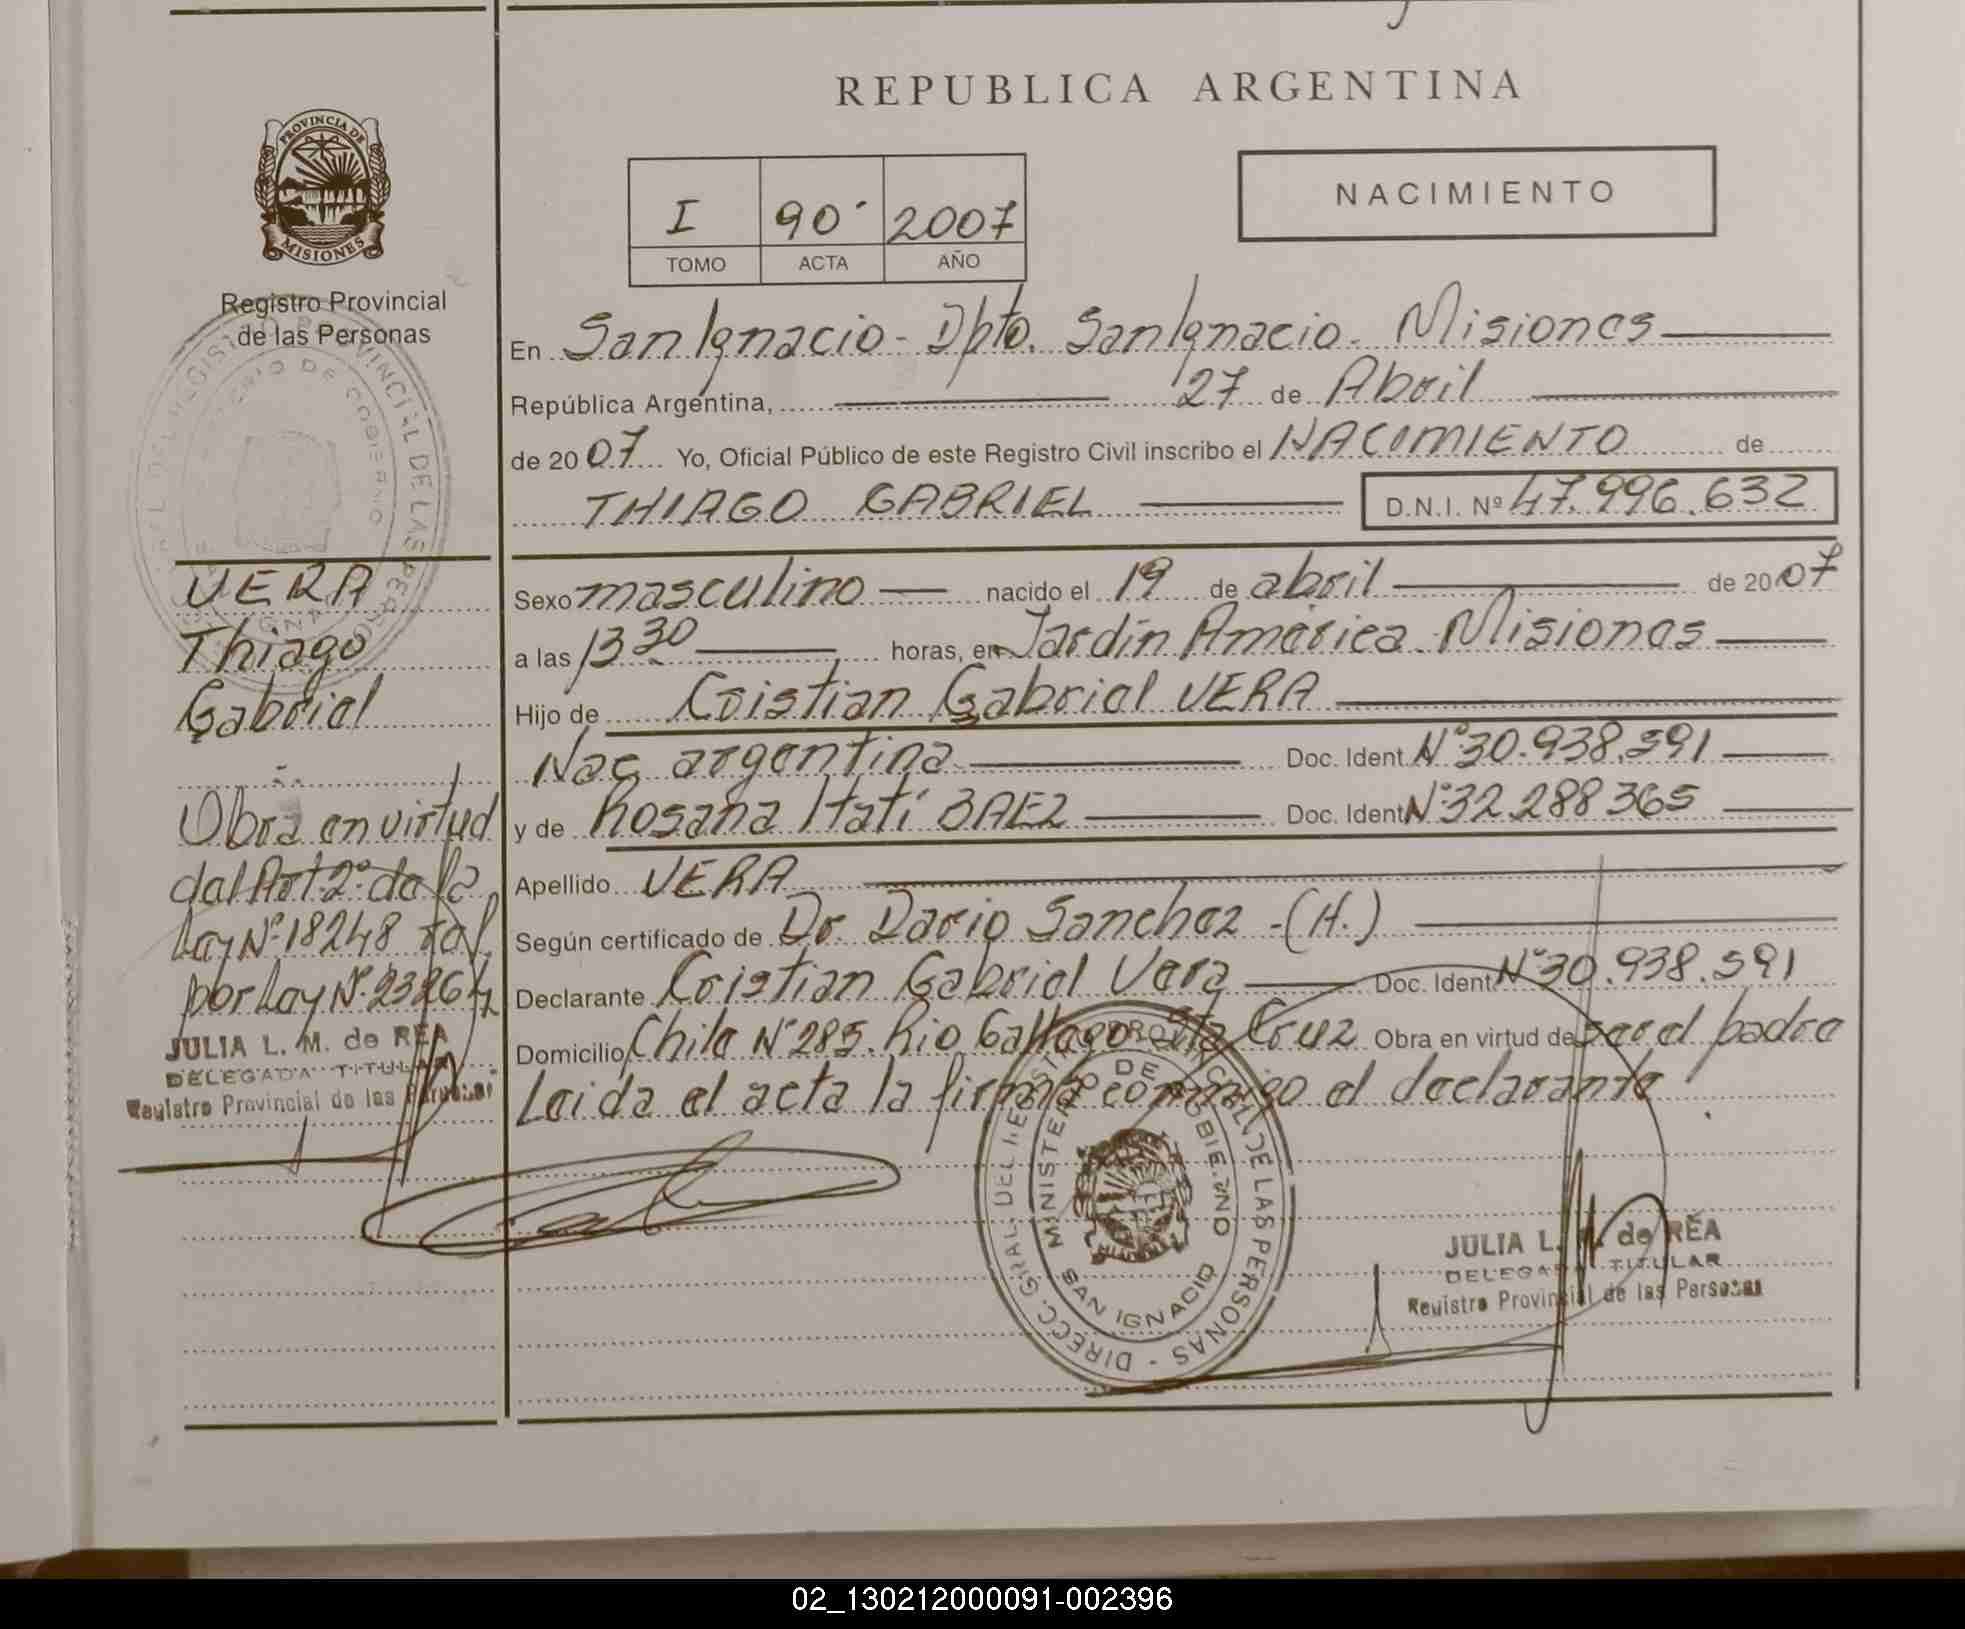 REPUBLICA ARGENTINA
PROVINCIA DE
MISIONES
Registro Provincial
de las Personas
I 90 2007
TOMO ACTA AÑO
NACIMIENTO
En San Ignacio - Dpto. San Ignacio. Misiones
República Argentina, 27 de Abril
de 2007 Yo, Oficial Público de este Registro Civil inscribo el NACIMIENTO de
THIAGO GABRIEL D.N.I. Nº 47.996.632
VERA
Thiago
Gabriel
Obra en virtud
del Art. 2º de la
Ley Nº 18248 ref.
por Ley Nº 23264
JULIA L. M. de REA
DELEGADA TITULAR
Registro Provincial de las Personas
Sexo masculino nacido el 19 de abril de 2007
a las 13 30 horas, en Jardín América. Misiones
Hijo de Cristian Gabriel VERA
Nac argentina Doc. Ident. Nº 30.938.591
y de Rosana Itatí BAEZ Doc. Ident. Nº 32.288365
Apellido VERA
Según certificado de Dr. Dario Sanchez - (H.)
Declarante Cristian Gabriel Vera Doc. Ident. Nº 30.938.591
Domicilio Chile Nº 285. Rio Gallego Sta Cruz Obra en virtud de ser el padre
Leida el acta la firma conmigo el declarante
DIRECC. GRAL. DEL REGISTRO PROVINCIAL DE LAS PERSONAS -
MINISTERIO DE GOBIERNO
SAN IGNACIO
JULIA L. M. de REA
DELEGADA TITULAR
Registro Provincial de las Personas
02_130212000091-002396